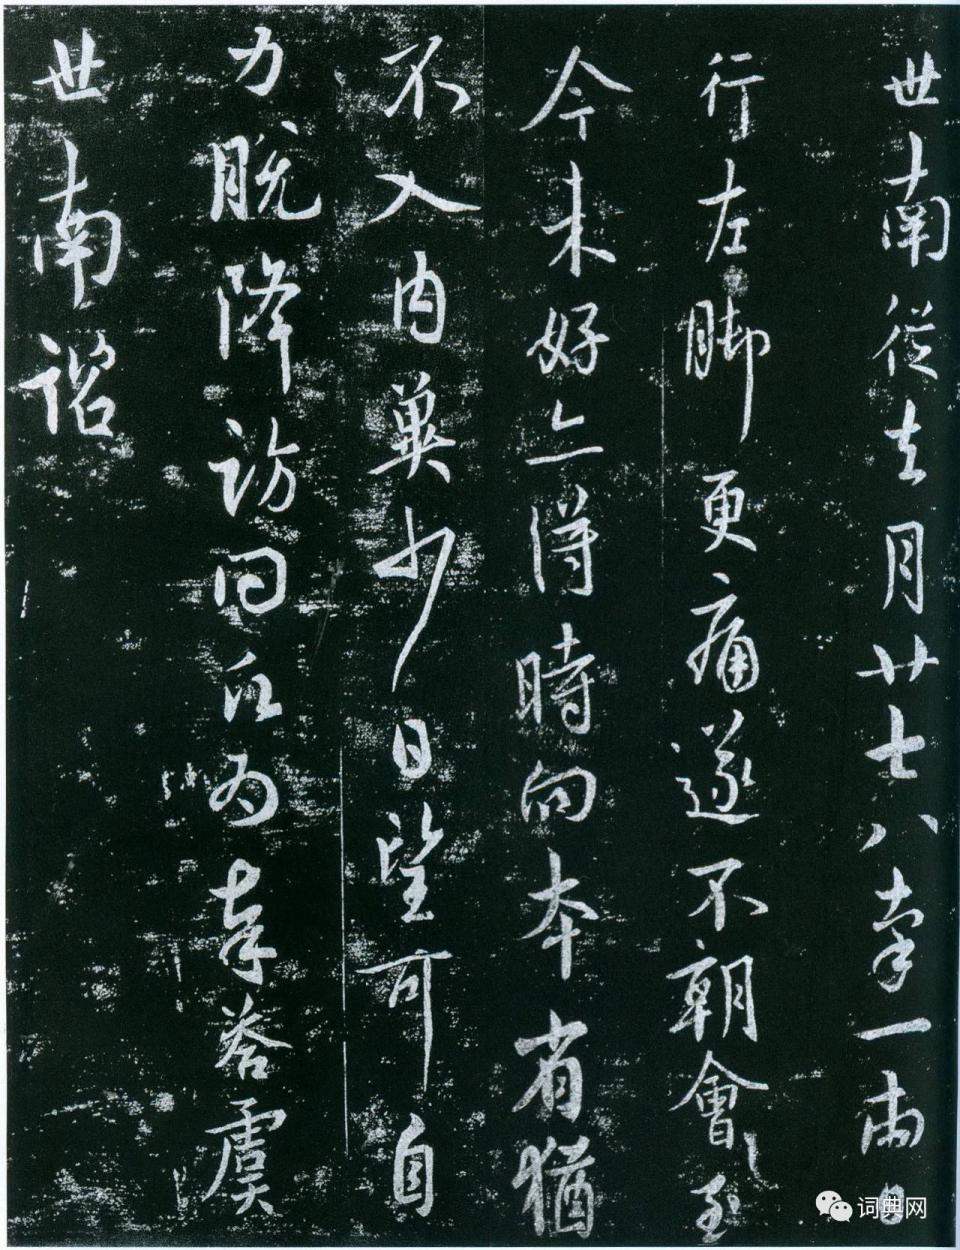 世南從去月廿七八率一兩日
行左脚更痛遂不朝會至
今未好亦得時向本省猶
不入內冀少日望可自
力脫降訪問願為奉答虞
世南諮
词典网